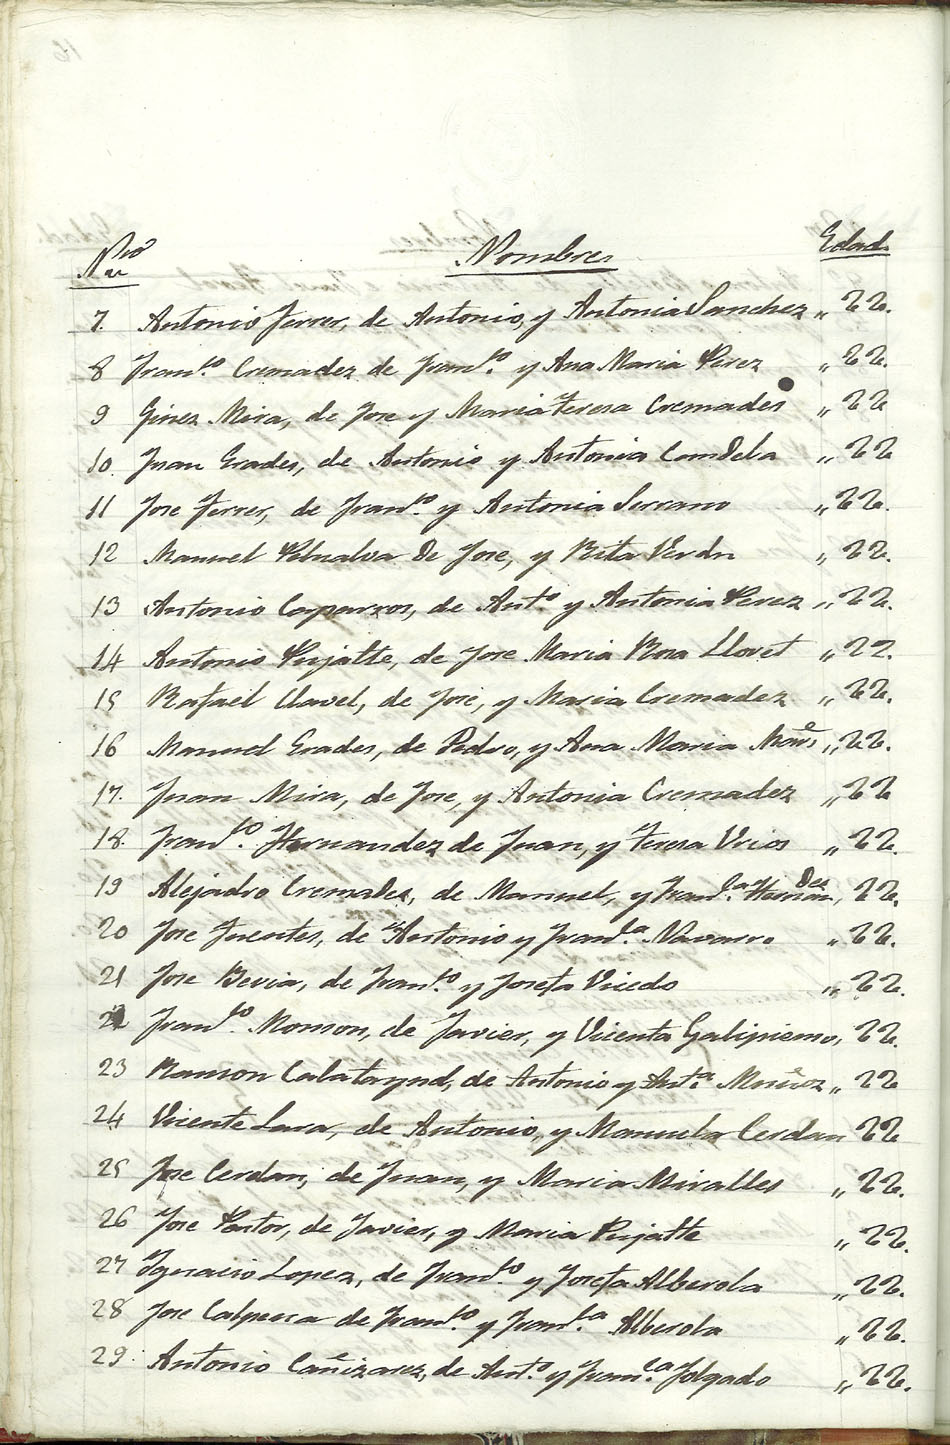 Nro Nombres Edad.
7. Antonio Ferrer, de Antonio, y Antonia Sanchez „ 22.
8 Franco. Cremadez de Franco. y Ana Maria Perez „ 22.
9 Ginez Mira, de Jose y Maria Teresa Cremades „ 22
10. Juan Grades, de Antonio y Antonia Candela „ 22
11 Jose Ferrer, de Franco. y Antonia Serrano „ 22.
12 Manuel Peñalva de Jose, y Rita Verdu „ 22.
13 Antonio Caparros, de Anto. y Antonia Perez „ 22.
14 Antonio Pujalte, de Jose Maria Rosa Lloret „ 22.
15 Rafael Clavel, de José, y Maria Cremadez „ 22.
16 Manuel Grades, de Pedro, y Ana Maria „ 22.
17. Juan Mira, de Jose, y Antonia Cremadez „ 22
18. Franco. Hernandez de Juan, y Teresa Urios „ 22.
19 Alejadro Cremades, de Manuel, y Franca. Hernandez, 22.
20 Jose Fuentes, de Antonio y Franca. Navarro „ 22.
21 Jose Bevia, de Franco. y Josefa Vicedo „ 22.
22 Franco. Monzon, de Javier, y Vicenta Galipienso, 22.
23 Ramon Calatayud, de Antonio y Anta. Muñoz „ 22
24 Vicente Lara, de Antonio, y Manuela Cerdan 22
25 Jose Cerdan, de Juan, y Maria Miralles „ 22.
26 Jose Pastor, de Javier, y Maria Pujalte „ 22.
27 Ygnacio Lopez, de Franco. y Josefa Alberola „ 22.
28 Jose Calpena de Franco. y Franca. Alberola „ 22.
29. Antonio Cañizarez, de Anto. y Franca. Folgado „ 22.